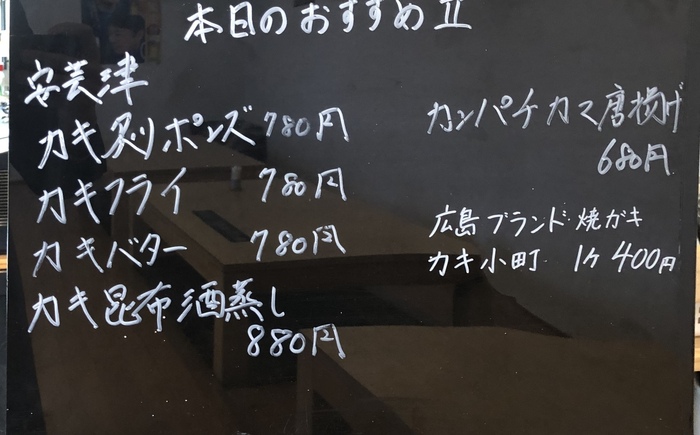 本日のおすすめ II
安芸津
カキ炙りポンズ 780円
カキフライ 780円
カキバター 780円
カキ昆布酒蒸し
880円
カンパチカマ唐揚げ
680円
広島ブランド焼ガキ
カキ小町 1ケ 400円